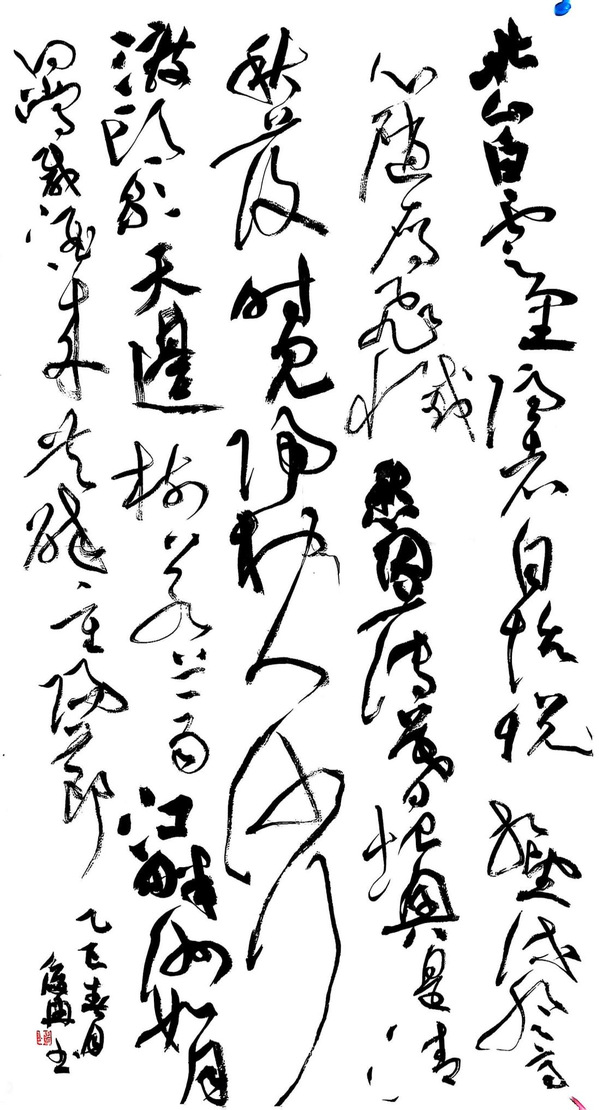 北山白云里隐者自怡悦相望试登高
心随雁飞灭愁因薄暮起興是清
秋发时见归村人沙行
渡头歇天边树若荠江畔洲如月
何当载酒来共醉重阳节
乙巳春月
书